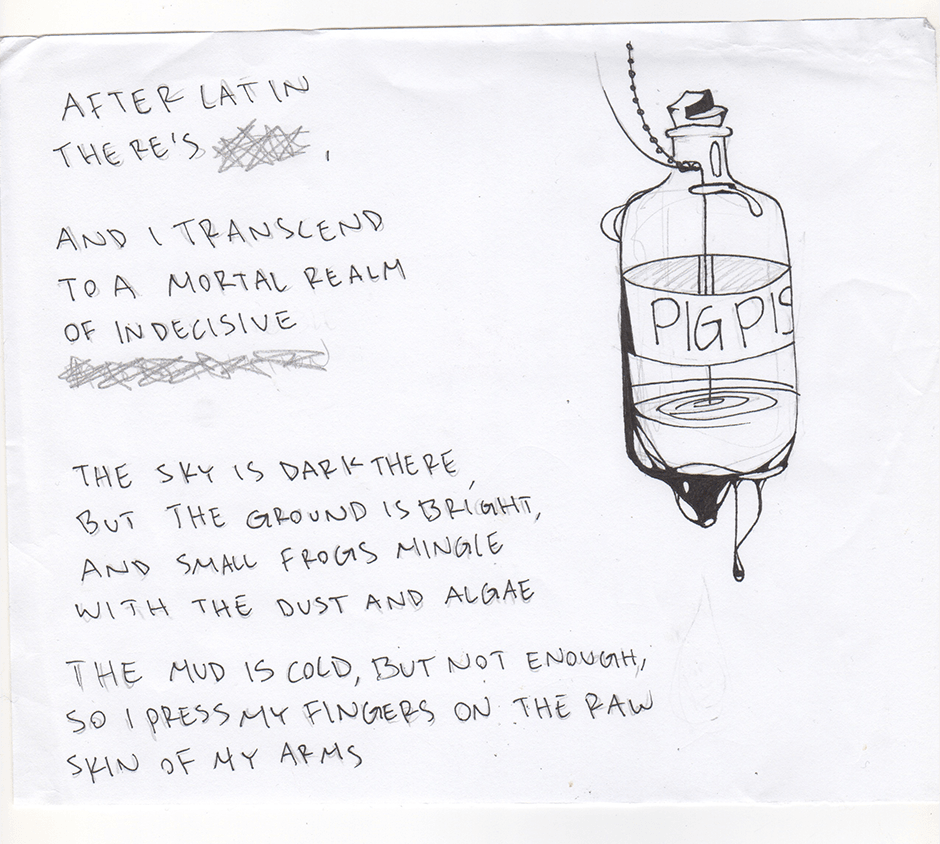 AFTER LATIN
THERE'S ,
AND I TRANSCEND
TO A MORTAL REALM
OF INDECISIVE
THE SKY IS DARK THERE,
BUT THE GROUND IS BRIGHT,
AND SMALL FROGS MINGLE
WITH THE DUST AND ALGAE
THE MUD IS COLD, BUT NOT ENOUGH,
SO I PRESS MY FINGERS ON THE RAW
SKIN OF MY ARMS
PIG PIS